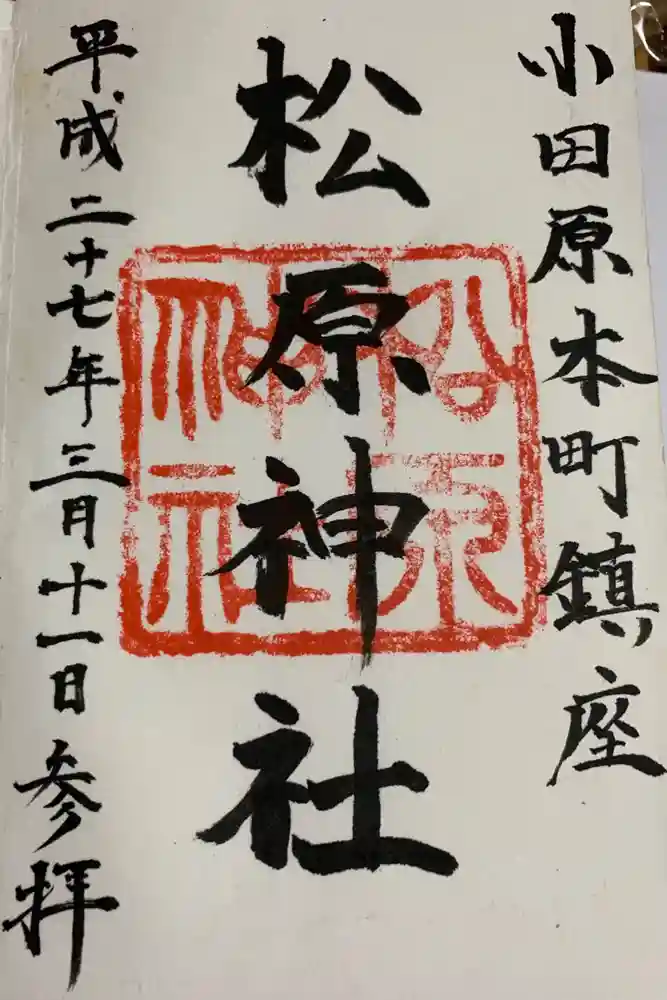 小田原本町鎮座
松原神社
松原神社
平成二十七年三月十一日参拝